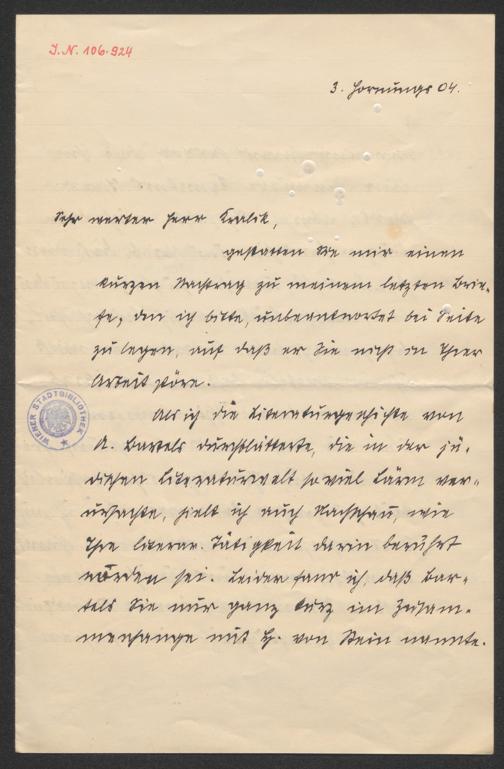 J.N. 106.924
3. Hornungs 04.
Sehr werter Herr Kralik,
gestatten Sie mir einen
kurzen Nachtrag zu meinem letzten Brie-
fe, den ich bitte, unbeantwortet bei Seite
zu legen, auf daß er Sie nicht in Ihrer
Arbeit störe.
WIENER STADTBIBLIOTHEK
Als ich die Literaturgeschichte von
A. Bartels durchblätterte, die in der jü-
dischen Literaturwelt so viel Lärm ver-
ursachte, hielt ich auch Nachschau, wie
Ihre literar. Tätigkeit darin berührt
worden sei. Leider fand ich, daß Bar-
tels Sie nur ganz kurz im Zusam-
menhange mit H. von Stein nannte.